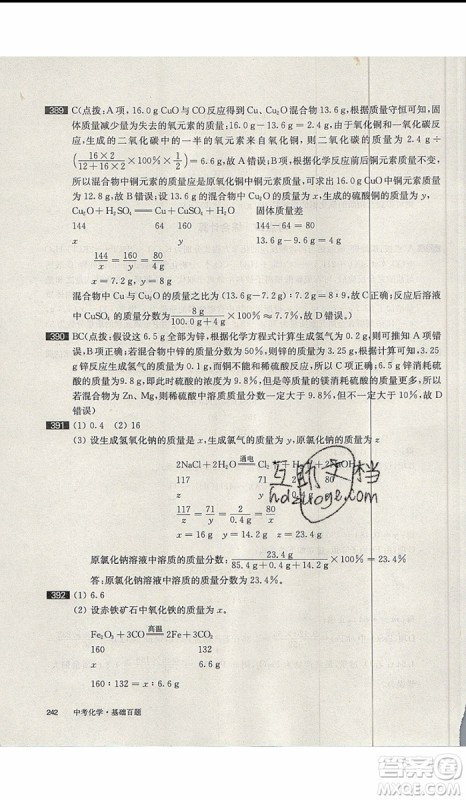 389 C(点拨:A项,16.0 g CuO与CO反应得到Cu、Cu₂O混合物13.6 g,根据质量守恒可知,固
体质量减少量为失去的氧元素的质量:16.0 g-13.6 g=2.4 g,由于氧化铜和一氧化碳反
应,生成的二氧化碳中的一半的氧元素来自氧化铜,则二氧化碳的质量为2.4 g÷
(16×2/(12+16×2)×100%×1/2)=6.6 g,故A错误;B项,根据化学反应前后铜元素质量不变,
所以混合物中铜元素的质量应是原氧化铜中铜元素的质量,可求出16.0 g氧化铜中铜元素的质量
为12.8 g,故B错误;设混合物中Cu₂O的质量为x,生成的硫酸铜的质量为y。
Cu₂O+H₂SO₄══Cu+CuSO₄+H₂O 固体质量差
144 64 160 144-64=80
x y 13.6 g-9.6 g=4.0 g
144/x=160/y=80/4g
x=7.2 g,y=8 g
混合物中Cu与Cu₂O的质量之比为(13.6 g-7.2 g):7.2 g=8:9,故C正确;反应后溶液
中CuSO₄的质量分数为8 g/(100.0 g+4 g)×100%≈7.7%,故D错误)
390 BC(点拨:假设这6.5 g全部为锌,根据化学方程式计算生成氢气为0.2 g,则可推知A项错
误,B项正确;若混合物中锌的质量为3.25 g,则铜的质量也为3.25 g,根据相关量可求得,3.25
g锌反应生成氢气的质量为0.1 g,而铜不能和稀硫酸反应,故C项正确;6.5 g的锌消耗硫
酸的质量为9.8 g,即此时硫酸的浓度为9.8%,由于等质量的镁消耗硫酸质量大于锌,故若
混合物为Zn、Mg,则稀硫酸的质量分数一定大于10%,不一定大于9.8%,故D
错误)
391 (1) 0.4 (2) 16
(3) 设生成氢氧化钠的质量是x,生成氯气的质量为y,原氯化钠溶液的质量为z
2NaCl+2H₂O══通电 Cl₂
117 71 2 80
z y x
117/z=71/y=2/0.4 g=80/x
x=16 g y=14.2 g z=23.4 g
原氯化钠溶液中溶质的质量分数:23.4 g/(85.4 g+0.4 g+14.2 g)×100%=23.4%
答:原氯化钠溶液中溶质的质量分数为23.4%。
互助文档
hdzuoye.com
392 (1) 6.6
(2) 设赤铁矿石中氧化铁的质量为x。
Fe₂O₃+3CO══高温 2Fe+3CO₂
160 132
x 6.6 g
160:132=x:6.6 g
242 中考化学·基础百题
MXQE.COM